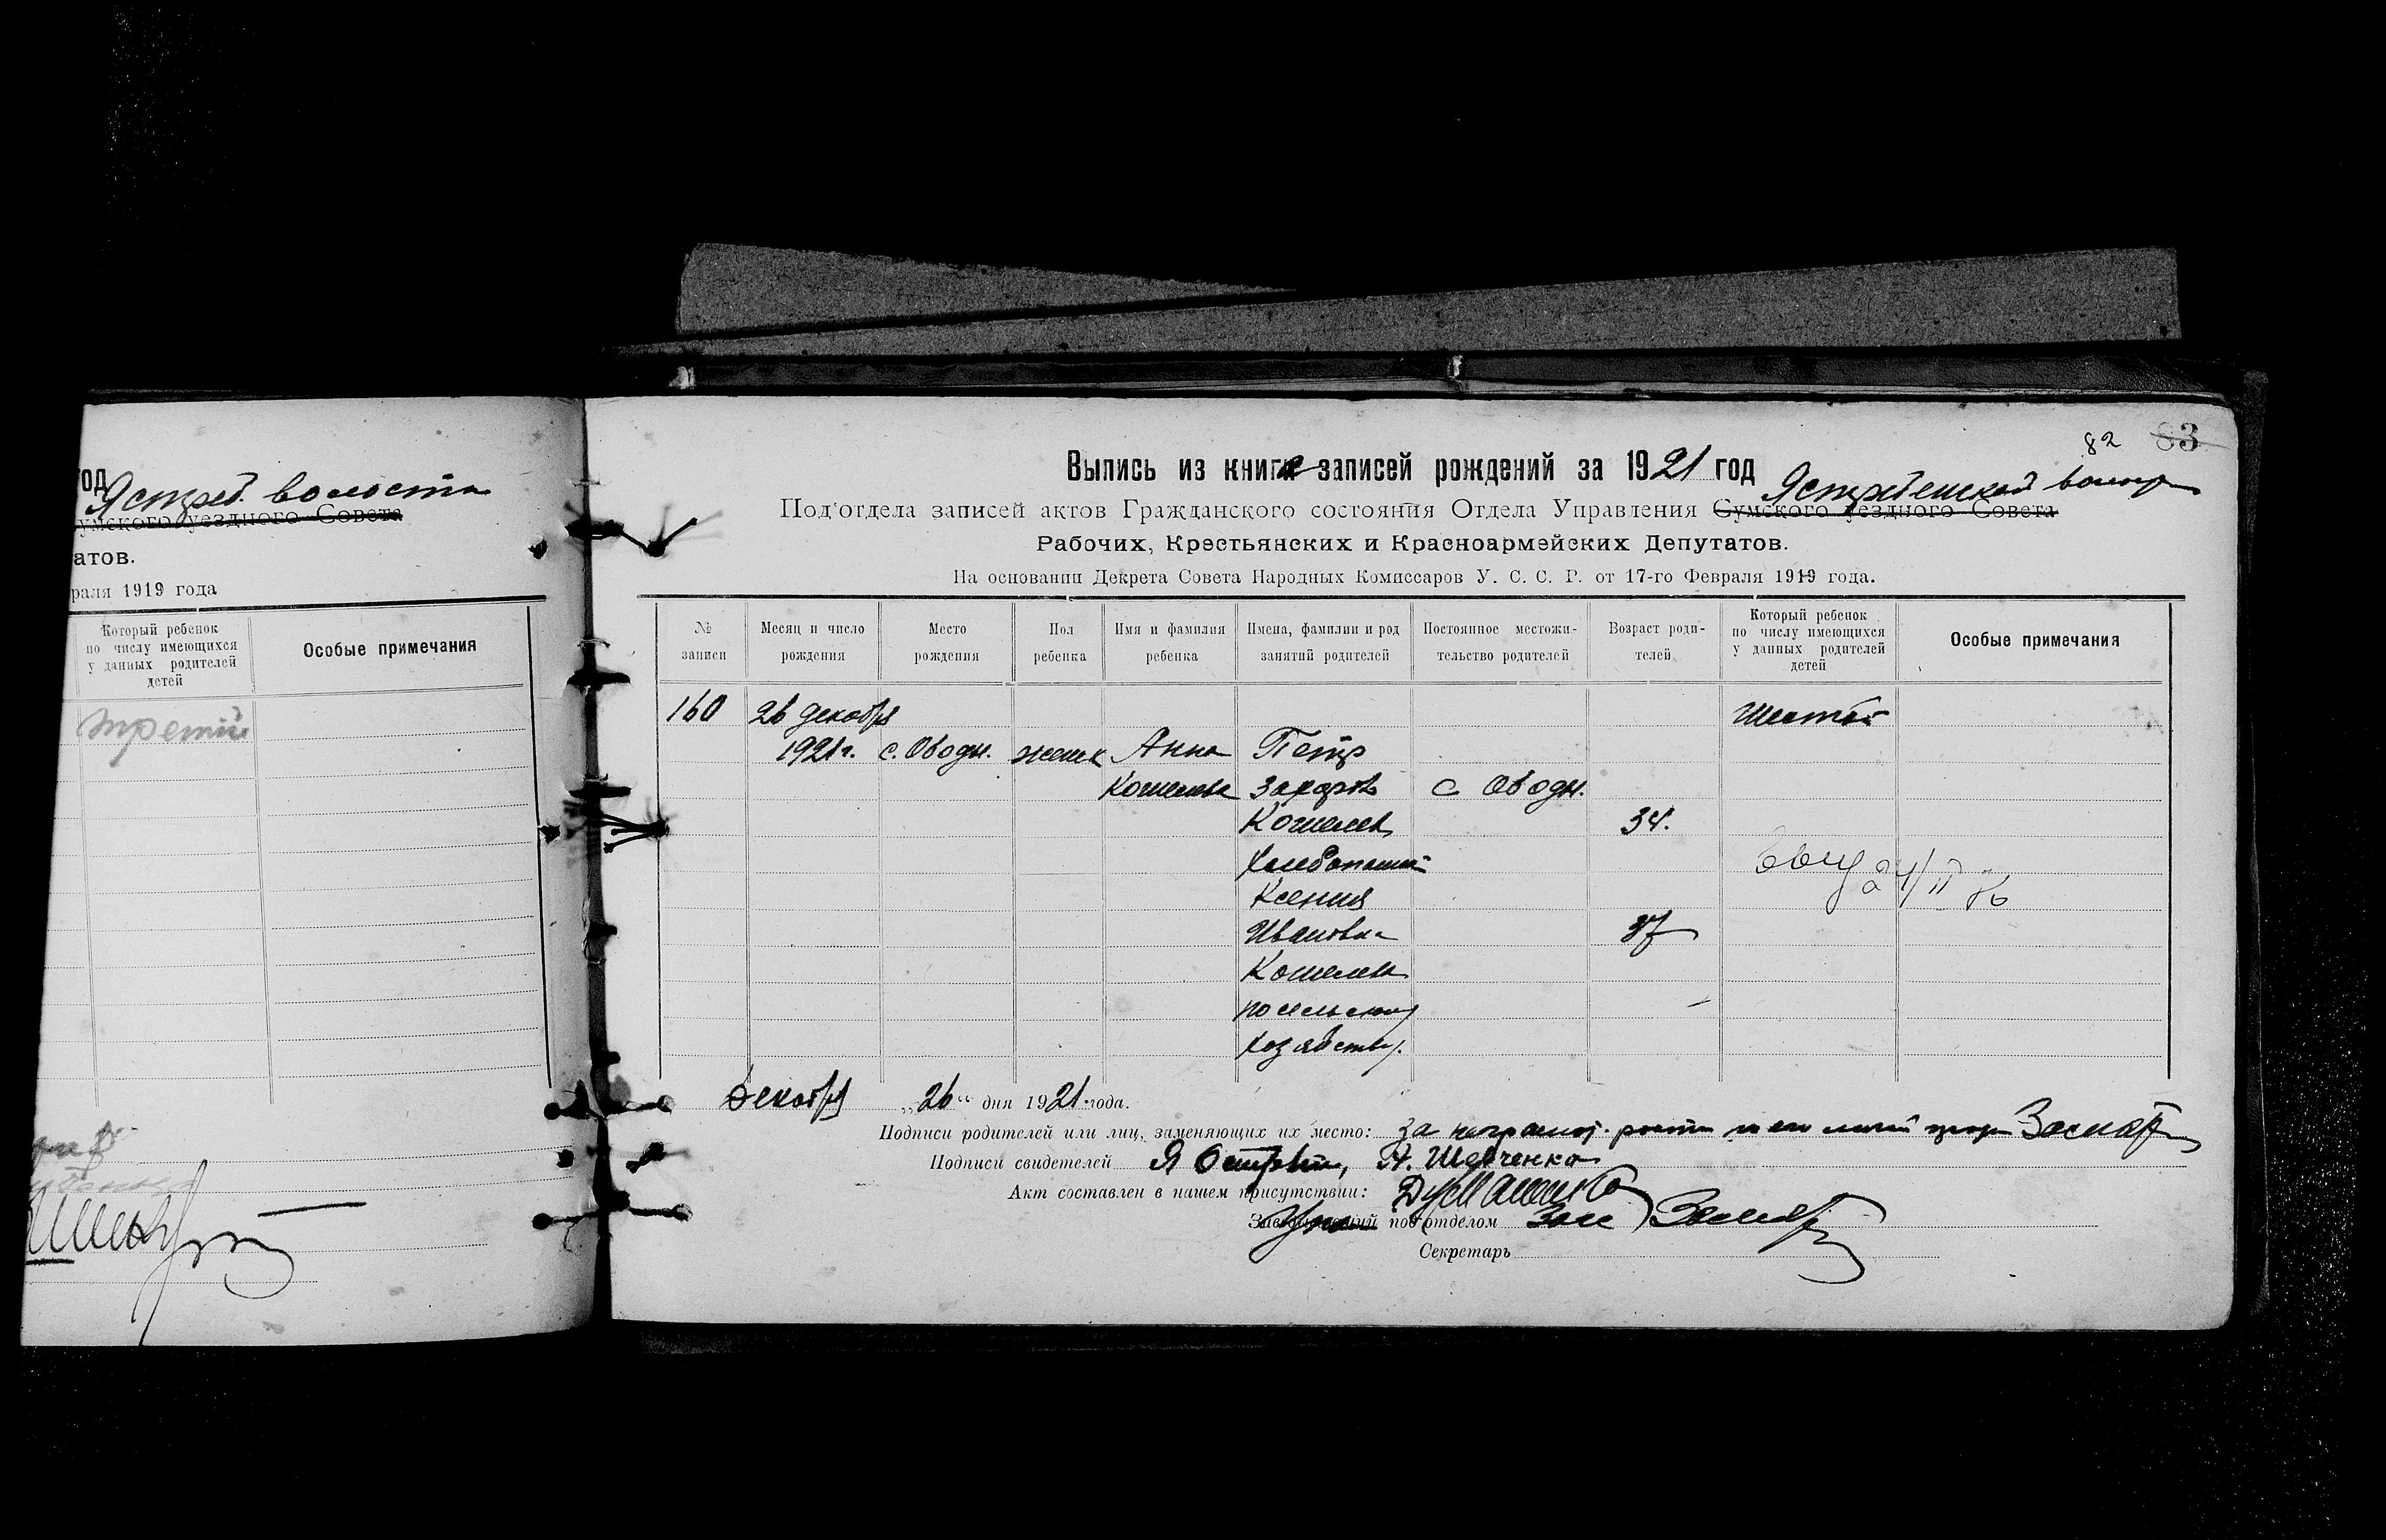 год
Ястреб. волости
умского уездного Совета
атов.
раля 1919 года
Который ребенок
по числу имеющихся
у данных родителей
детей
Особые примечания
третий
82 83
Выпись из книги записей рождений за 1921 год
Ястребенской
Под'отдела записей актов Гражданского состояния Отдела Управления Сумского уездного Совета
Рабочих, Крестьянских и Красноармейских Депутатов.
На основании Декрета Совета Народных Комиссаров У. С. С. Р. от 17-го Февраля 1919 года.
№ записи
Месяц и число рождения
Место рождения
Пол ребенка
Имя и фамилия ребенка
Имена, фамилии и род занятий родителей
Постоянное местожи-тельство родителей
Возраст роди-телей
Который ребенок
по числу имеющихся
у данных родителей
детей
Особые примечания
160 26 декабря Шестой
1921 г. с. Ободы. женск Анна Петр
Кошелева Захаров с Ободы.
Кошелев 34.
хлебопашец
Ксения
Ивановна 37
Кошелева
по сельскому
хозяйству.
Декабря „26“ дня 1921 года.
Подписи родителей или лиц, заменяющих их место: За неграмот.
Подписи свидетелей Я А. Шевченко
Акт составлен в нашем присутствии:
под'отделом
Секретарь